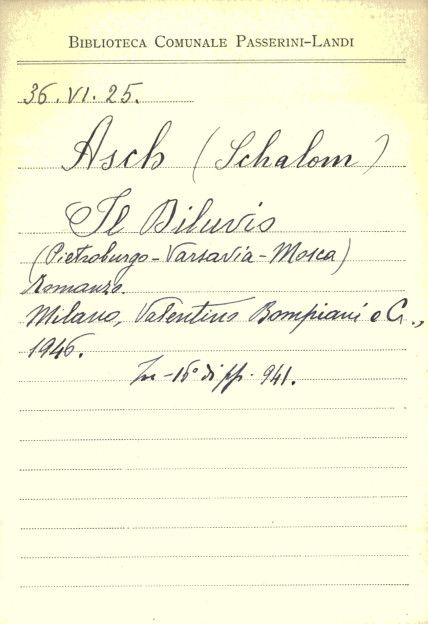 BIBLIOTECA COMUNALE PASSERINI-LANDI
36.VI.25.
Asch (Schalom)
Il Diluvio
(Pietroburgo-Varsavia-Mosca)
Romanzo.
Milano, Valentino Bompiani e C.,
1946.
In-16° di pp. 941.